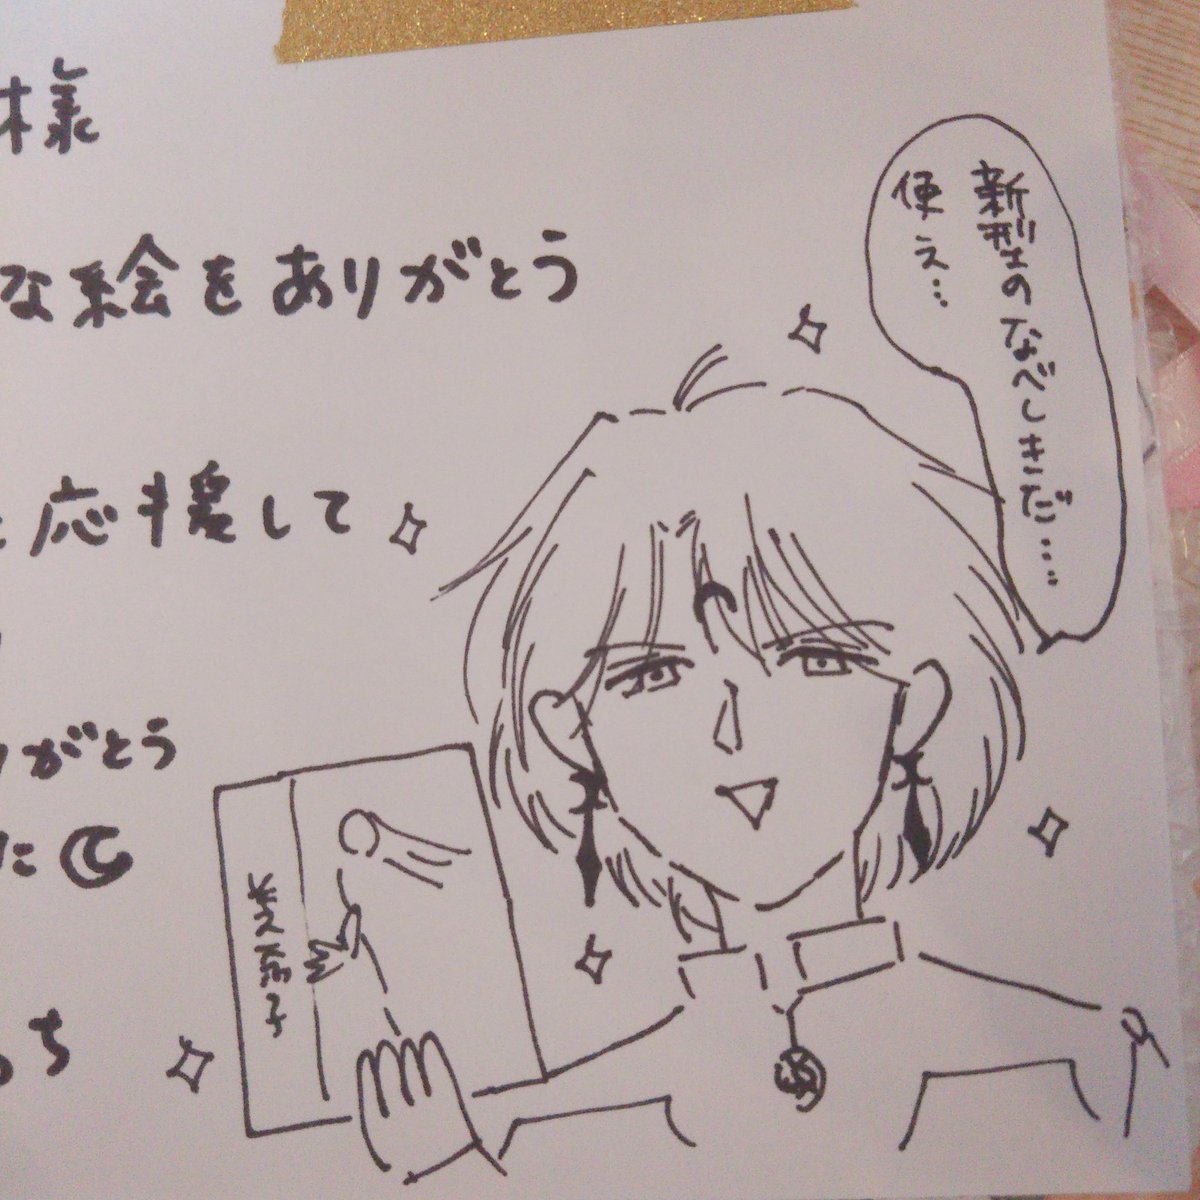 様
な絵をありがとう
応援して
がとう
に
ち
新型のなべしきだ…‥
使え…